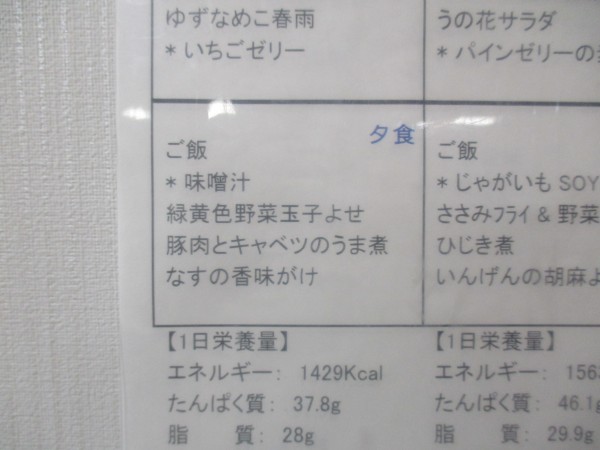 ゆずなめこ春雨
* いちごゼリー
夕食
ご飯
* 味噌汁
緑黄色野菜玉子よせ
豚肉とキャベツのうま煮
なすの香味がけ
【1日栄養量】
エネルギー: 1429Kcal
たんぱく質: 37.8g
脂 質: 28g
うの花サラダ
* パインゼリーの
ご飯
* じゃがいも SOY
ささみフライ & 野菜
ひじき煮
いんげんの胡麻よ
【1日栄養量】
エネルギー: 156
たんぱく質: 46.1g
脂 質: 29.9g